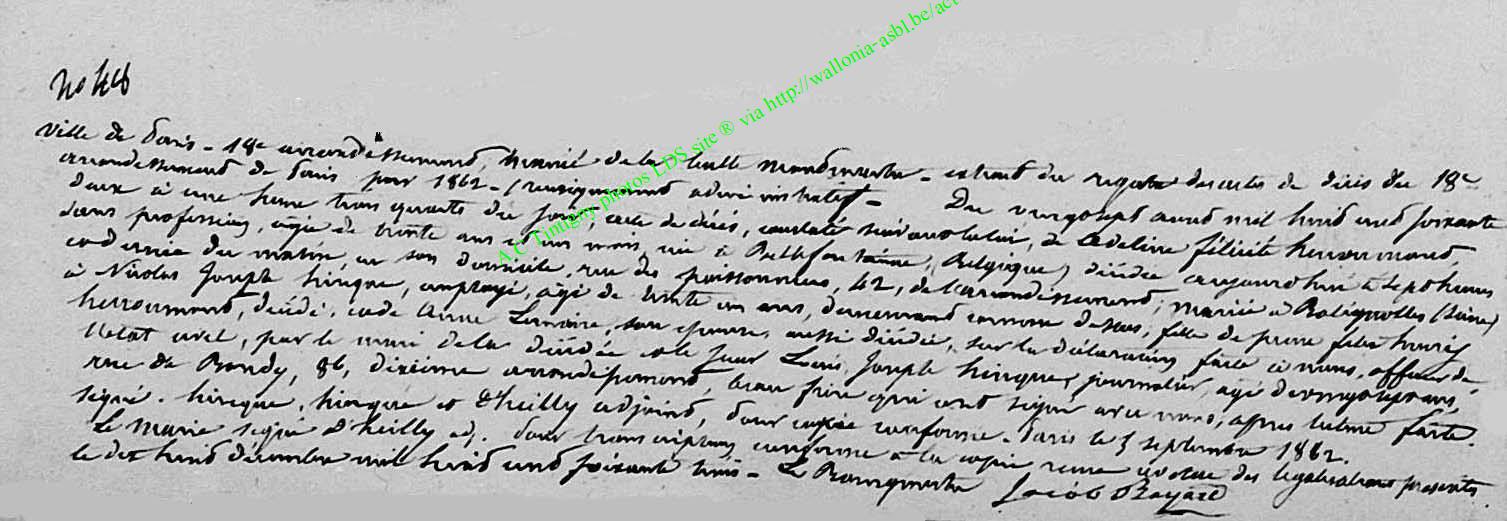 A.C Tintigny photos LDS site ® via http://wallonia-asbl.be/act
No
Ville de Paris - 18e arrondissement, mairie de la butte Montmartre - extrait du registre des actes de décès du 18e
arrondissement de Paris pour 1862 - (renseignement administratif) - Du vingt sept aout mil huit cent soixante
deux à une heure trois quarts du soir, acte de décès, constaté suivant la loi, de Adeline félicité herroumand,
sans profession, agée de trente ans et un mois, née à Bellefontaine, (Belgique) décédée aujourd'hui à sept heures
et demie du matin, en son domicile, rue des poissonniers, 42, de l'arrondissement, mariée à Batignolles (Seine)
à Nicolas Joseph hinque, employé, agé de trente un ans, demeurant comme dessus, fille de pierre felix henri
herroumand, décédé, et de Anne Lemaire, son épouse, aussi décédée, sur la déclaration faite à nous, officier de
l'état civil, par le mari de la décédée et le sieur Louis Joseph hinque, journalier, agé de vingt sept ans,
rue de Bondy, 86, dixième arrondissement, beau frère qui ont signé avec nous, après lecture faite.
signé. hinque, hinque et d'heilly adjoint, pour copie conforme. Paris le 5 septembre 1862.
Le Maire signé d'heilly adj. Pour transcription conforme à la copie revêtue des légalisations prescrites
le dix huit décembre mil huit cent soixante trois - Le Bourgmestre Jacob